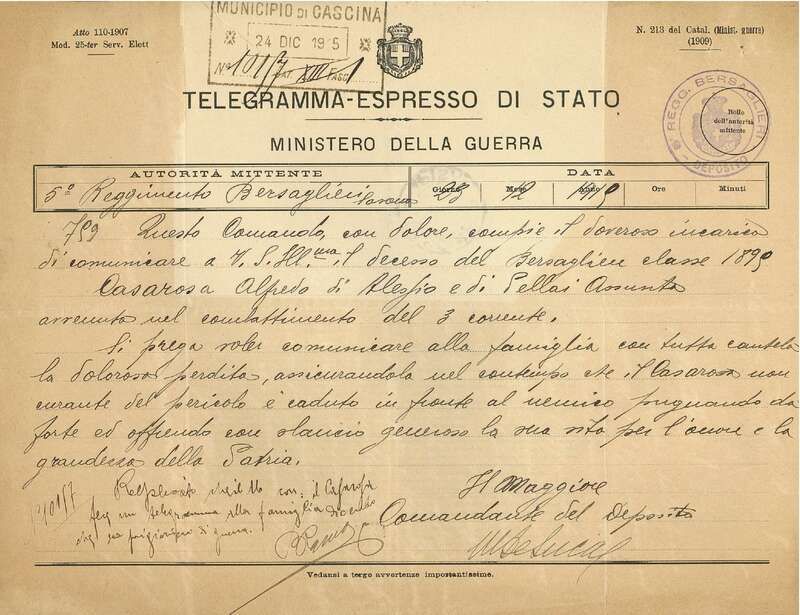 Atto 110-1907
Mod. 25-ter Serv. Elett
MUNICIPIO DI CASCINA
24 DIC 1915
No 10117 CAT. XIII FASC. 1
N. 213 del Catal. (Minist. guerra)
(1909)
TELEGRAMMA-ESPRESSO DI STATO
MINISTERO DELLA GUERRA
REGG. BERSAGLIERI
DEPOSITO
Bollo
dell'autorità
mittente
AUTORITÀ MITTENTE DATA
5o Reggimento Bersaglieri Giorno 23 Mese 12 Anno 1915 Ore Minuti
759 Questo Comando, con dolore, compie il doveroso incarico
di comunicare a V. S. Ill.ma il decesso del Bersagliere classe 1895
Casarosa Alfredo di Alessio e di Pellai Assunta
avvenuto nel combattimento del 3 corrente.
Si prega voler comunicare alla famiglia con tutta cautela
la dolorosa perdita, assicurandola nel contempo che il Casarosa non
curante del pericolo è caduto in fronte al nemico pugnando da
forte ed offrendo con slancio generoso la sua vita per l'onore e la
grandezza della Patria.
Il Maggiore
Comandante del Deposito
10117
il Casarosa
fece un telegramma alla famiglia dicendo
prigioniero di guerra.
Vedansi a tergo avvertenze importantissime.